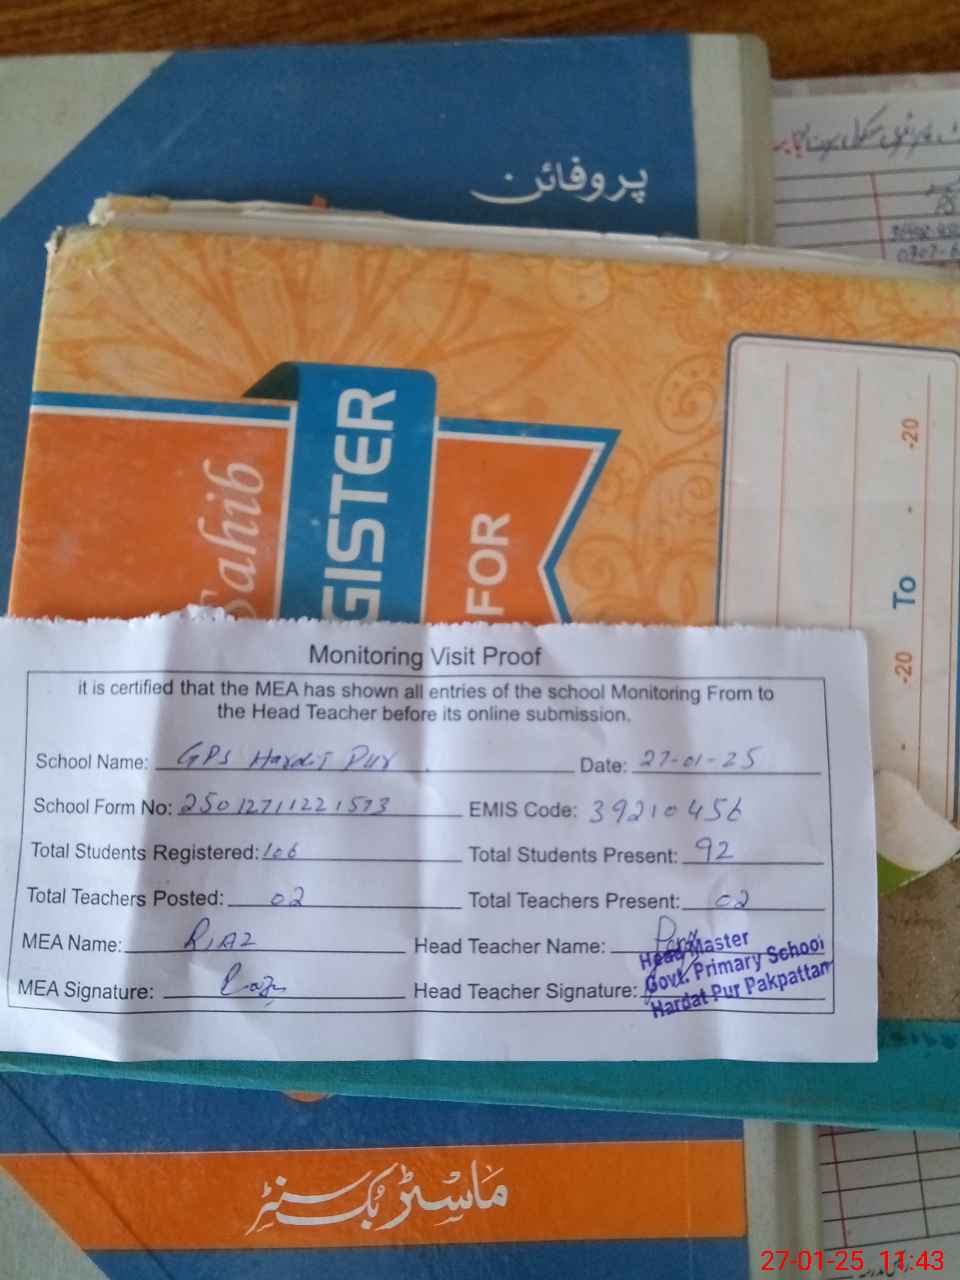 پروفائن
Sahib
GISTER
FOR
-20 To - -20
Monitoring Visit Proof
it is certified that the MEA has shown all entries of the school Monitoring From to
the Head Teacher before its online submission.
School Name: GPS Hardit Pur Date: 27-01-25
School Form No: 250127111221573 EMIS Code: 39210456
Total Students Registered: 106 Total Students Present: 92
Total Teachers Posted: 02 Total Teachers Present: 02
MEA Name: RIAZ Head Teacher Name:
MEA Signature: Head Teacher Signature:
Head Master
Govt. Primary School
Hardat Pur Pakpattan
ماسٹر بک سنٹر
27-01-25 11:43